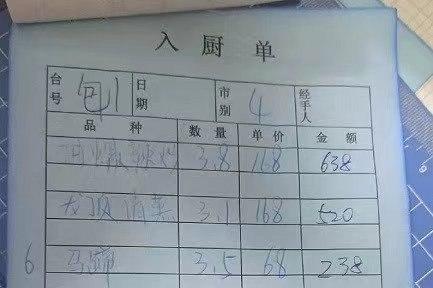 入厨单
台号 包1 日期 市别 4 经手人
品种 数量 单价 金额
3.8 168 638
清蒸 3.1 168 520
6 马蹄 3.5 68 238